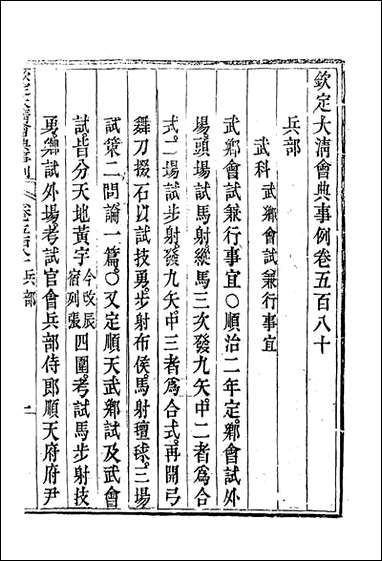 欽定大清會典事例卷五百八十
兵部
武科 武鄉會試兼行事宜
武鄉會試兼行事宜○順治二年定鄉會試外
場頭場試馬射縱馬三次發九矢中二者爲合
式二場試步射發九矢中三者爲合式再開弓
舞刀掇石以試技勇步射布侯馬射氊球三場
試策二問論一篇○又定順天武鄉試及武會
試皆分天地黃宇今改辰宿列張四圍考試馬步射技
勇鄉試外場考試官會兵部侍郎順天府府尹
兵部
一